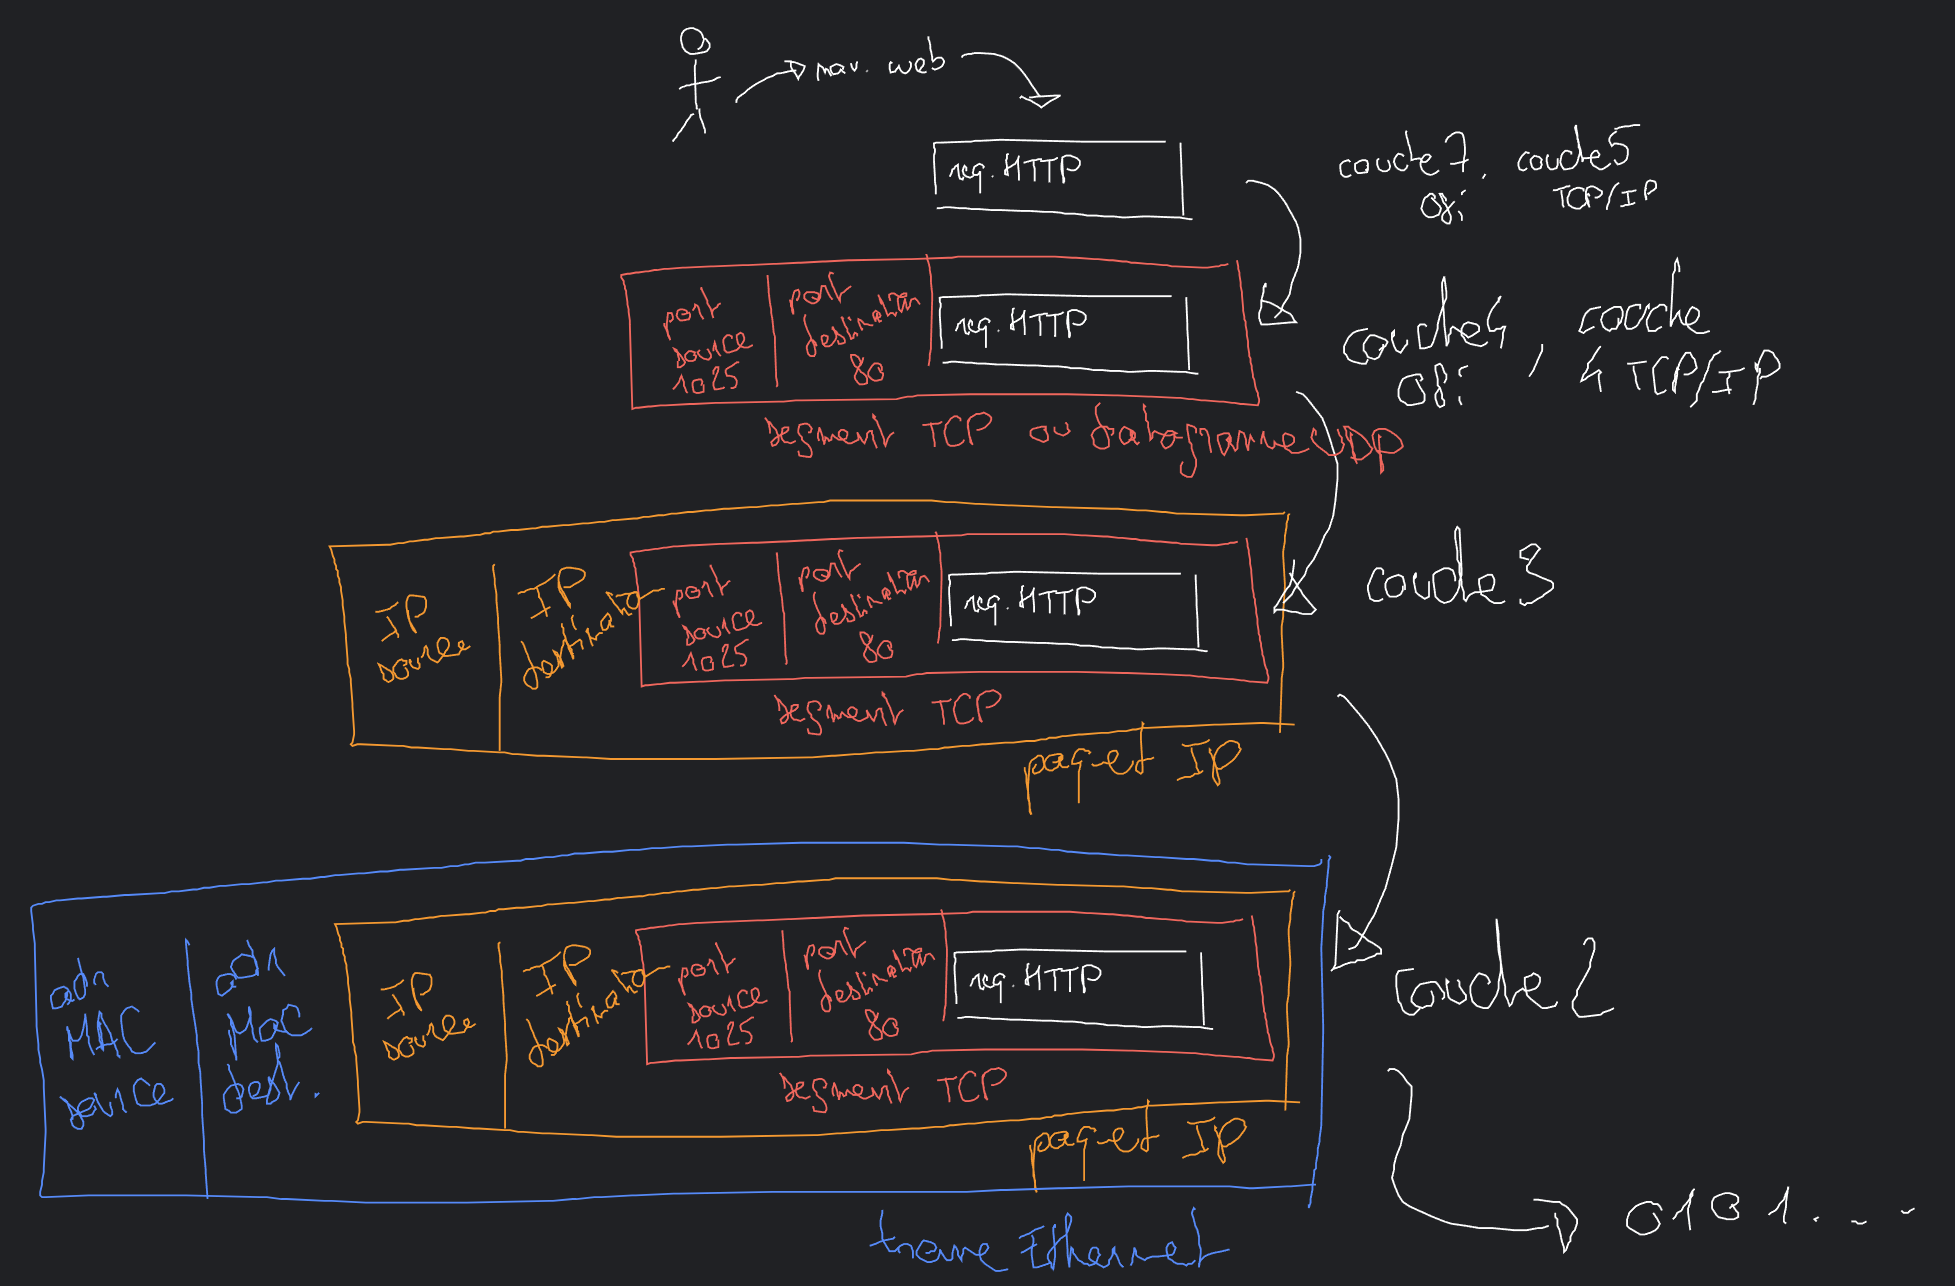 nav. web
req. HTTP
couche 7, couche 5
osi TCP/IP
port source 1025
port destination 80
req. HTTP
couche 4, couche
osi 4 TCP/IP
segment TCP ou datagramme UDP
IP source
IP destination
port source 1025
port destination 80
req. HTTP
couche 3
segment TCP
paquet IP
adr MAC source
adr MAC dest.
IP source
IP destination
port source 1025
port destination 80
req. HTTP
couche 2
segment TCP
paquet IP
trame Ethernet
0101....